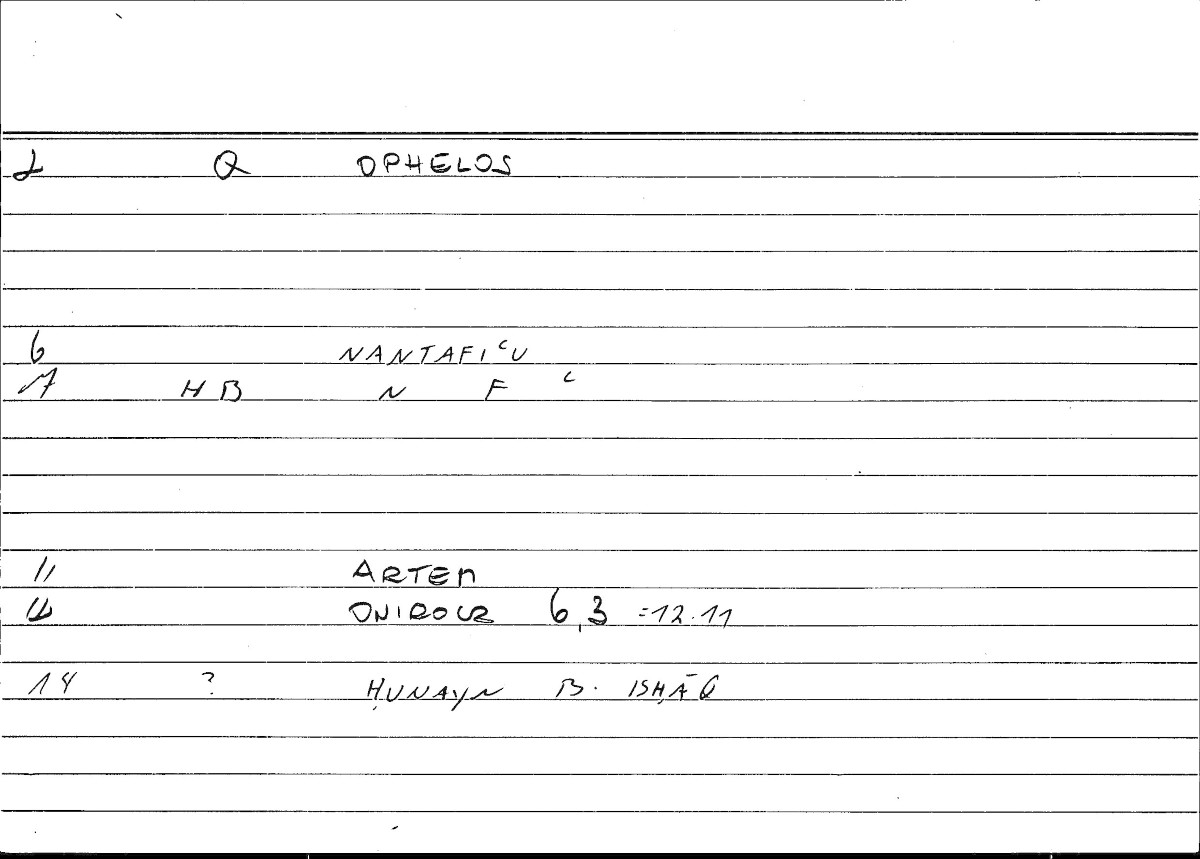 1 Q OPHELOS
6 NANTAFIʿU
7 H B N F ʿ
11 ARTEM
12 ONIROCR 6,3 =12.11
14 ? ḤUNAYN B. ISḤĀQ